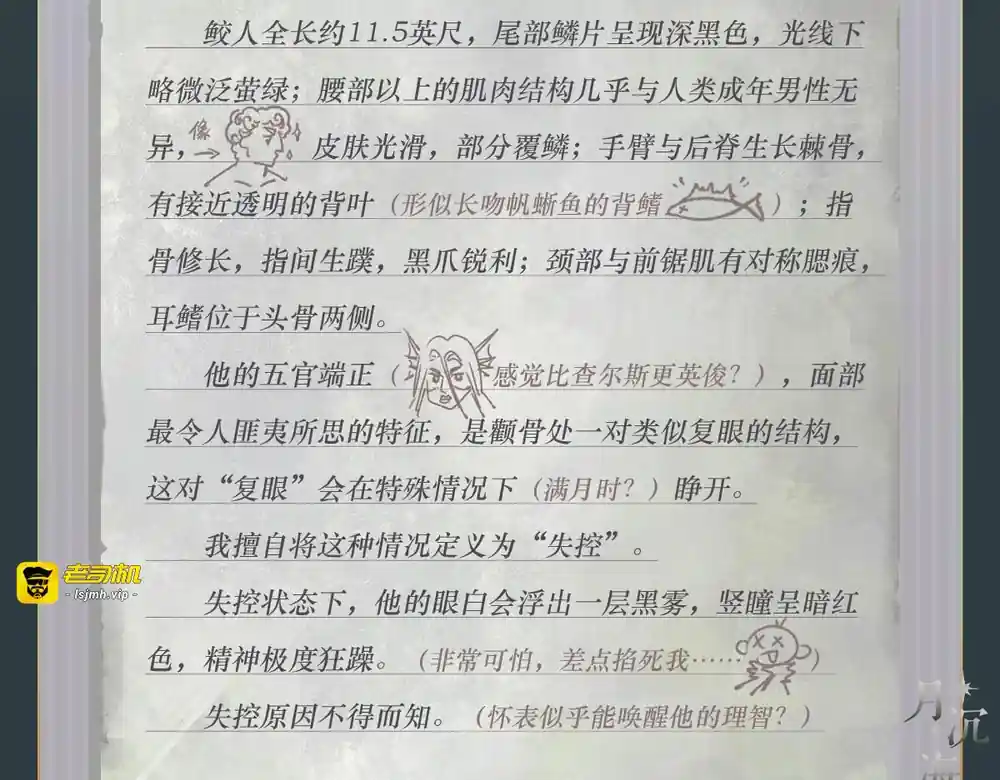 鲛人全长约11.5英尺，尾部鳞片呈现深黑色，光线下
略微泛萤绿；腰部以上的肌肉结构几乎与人类成年男性无
异，像→皮肤光滑，部分覆鳞；手臂与后脊生长棘骨，
有接近透明的背叶（形似长吻帆蜥鱼的背鳍）；指
骨修长，指间生蹼，黑爪锐利；颈部与前锯肌有对称腮痕，
耳鳍位于头骨两侧。
他的五官端正（感觉比查尔斯更英俊？），面部
最令人匪夷所思的特征，是颧骨处一对类似复眼的结构，
这对“复眼”会在特殊情况下（满月时？）睁开。
我擅自将这种情况定义为“失控”。
老司机
- lsjmh.vip -
失控状态下，他的眼白会浮出一层黑雾，竖瞳呈暗红
色，精神极度狂躁。（非常可怕，差点掐死我……）
失控原因不得而知。（怀表似乎能唤醒他的理智？）
月沉海